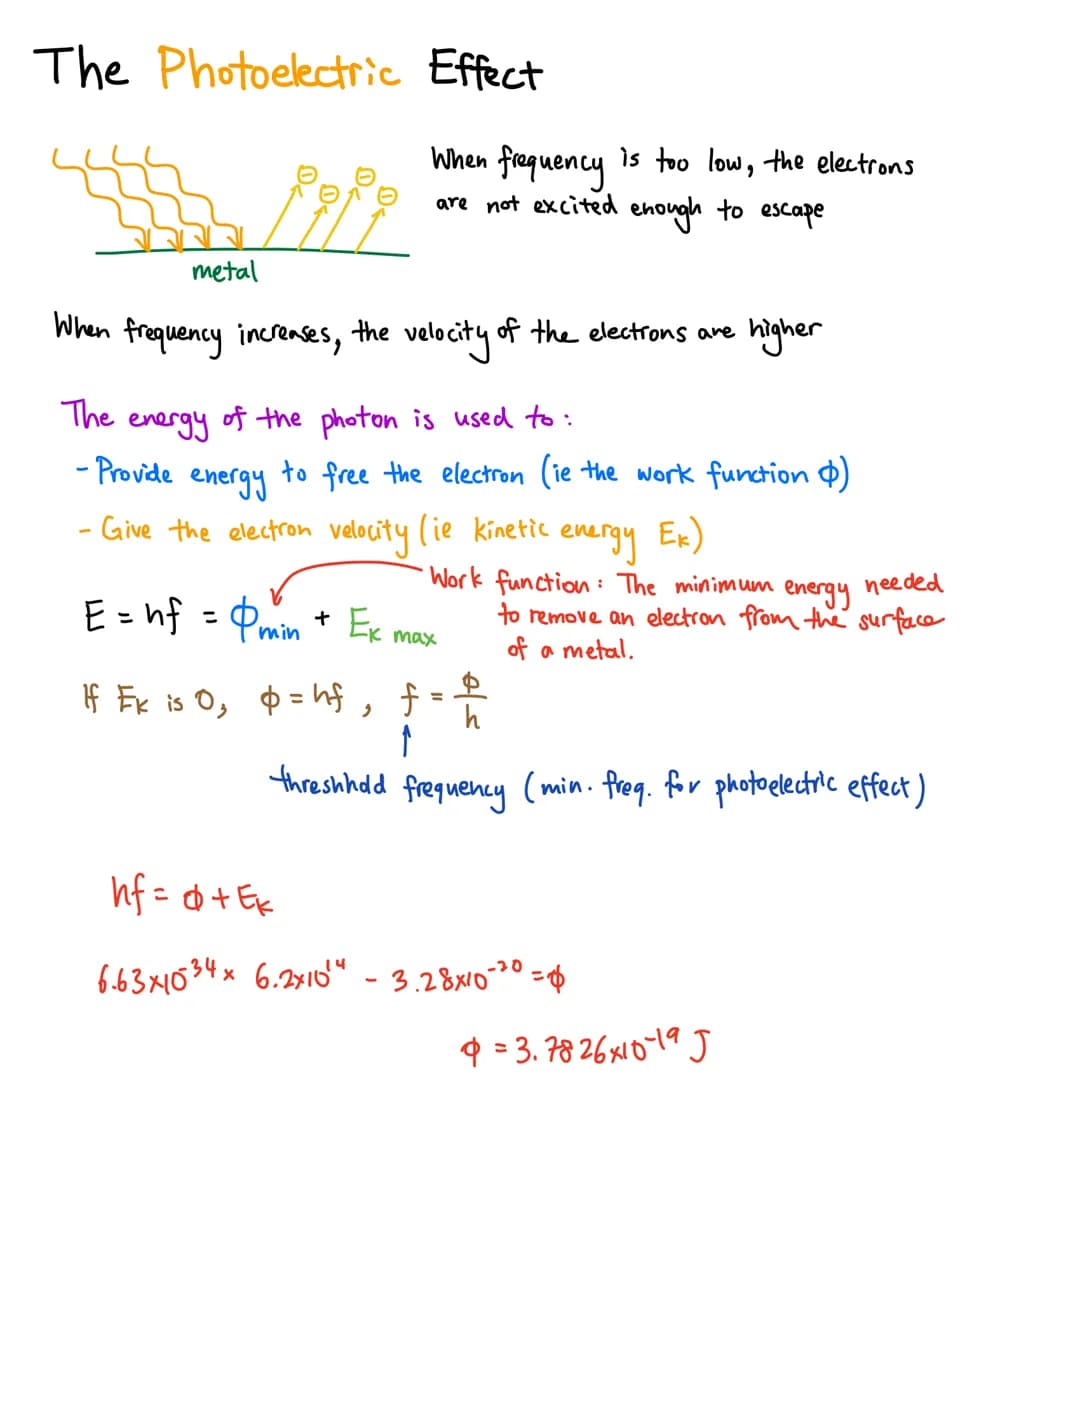 The Photoelectric Effect
When frequency is too low, the electrons
are not excited enough to escape
metal
When frequency increases, the velocity of the electrons are higher
The energy of the photon is used to:
- Provide energy to free the electron (ie the work function Φ)
- Give the electron velocity (ie kinetic energy Eₖ)
Work function: The minimum energy needed
to remove an electron from the surface
of a metal.
E = hf = Φmin + Eₖ max
If Eₖ is 0, Φ = hf, f = Φ/h
threshhold frequency (min. freq. for photoelectric effect)
hf = Φ + Eₖ
6.63×10⁻³⁴ × 6.2×10¹⁴ - 3.28×10⁻²⁰ = Φ
Φ = 3.7826×10⁻¹⁹ J